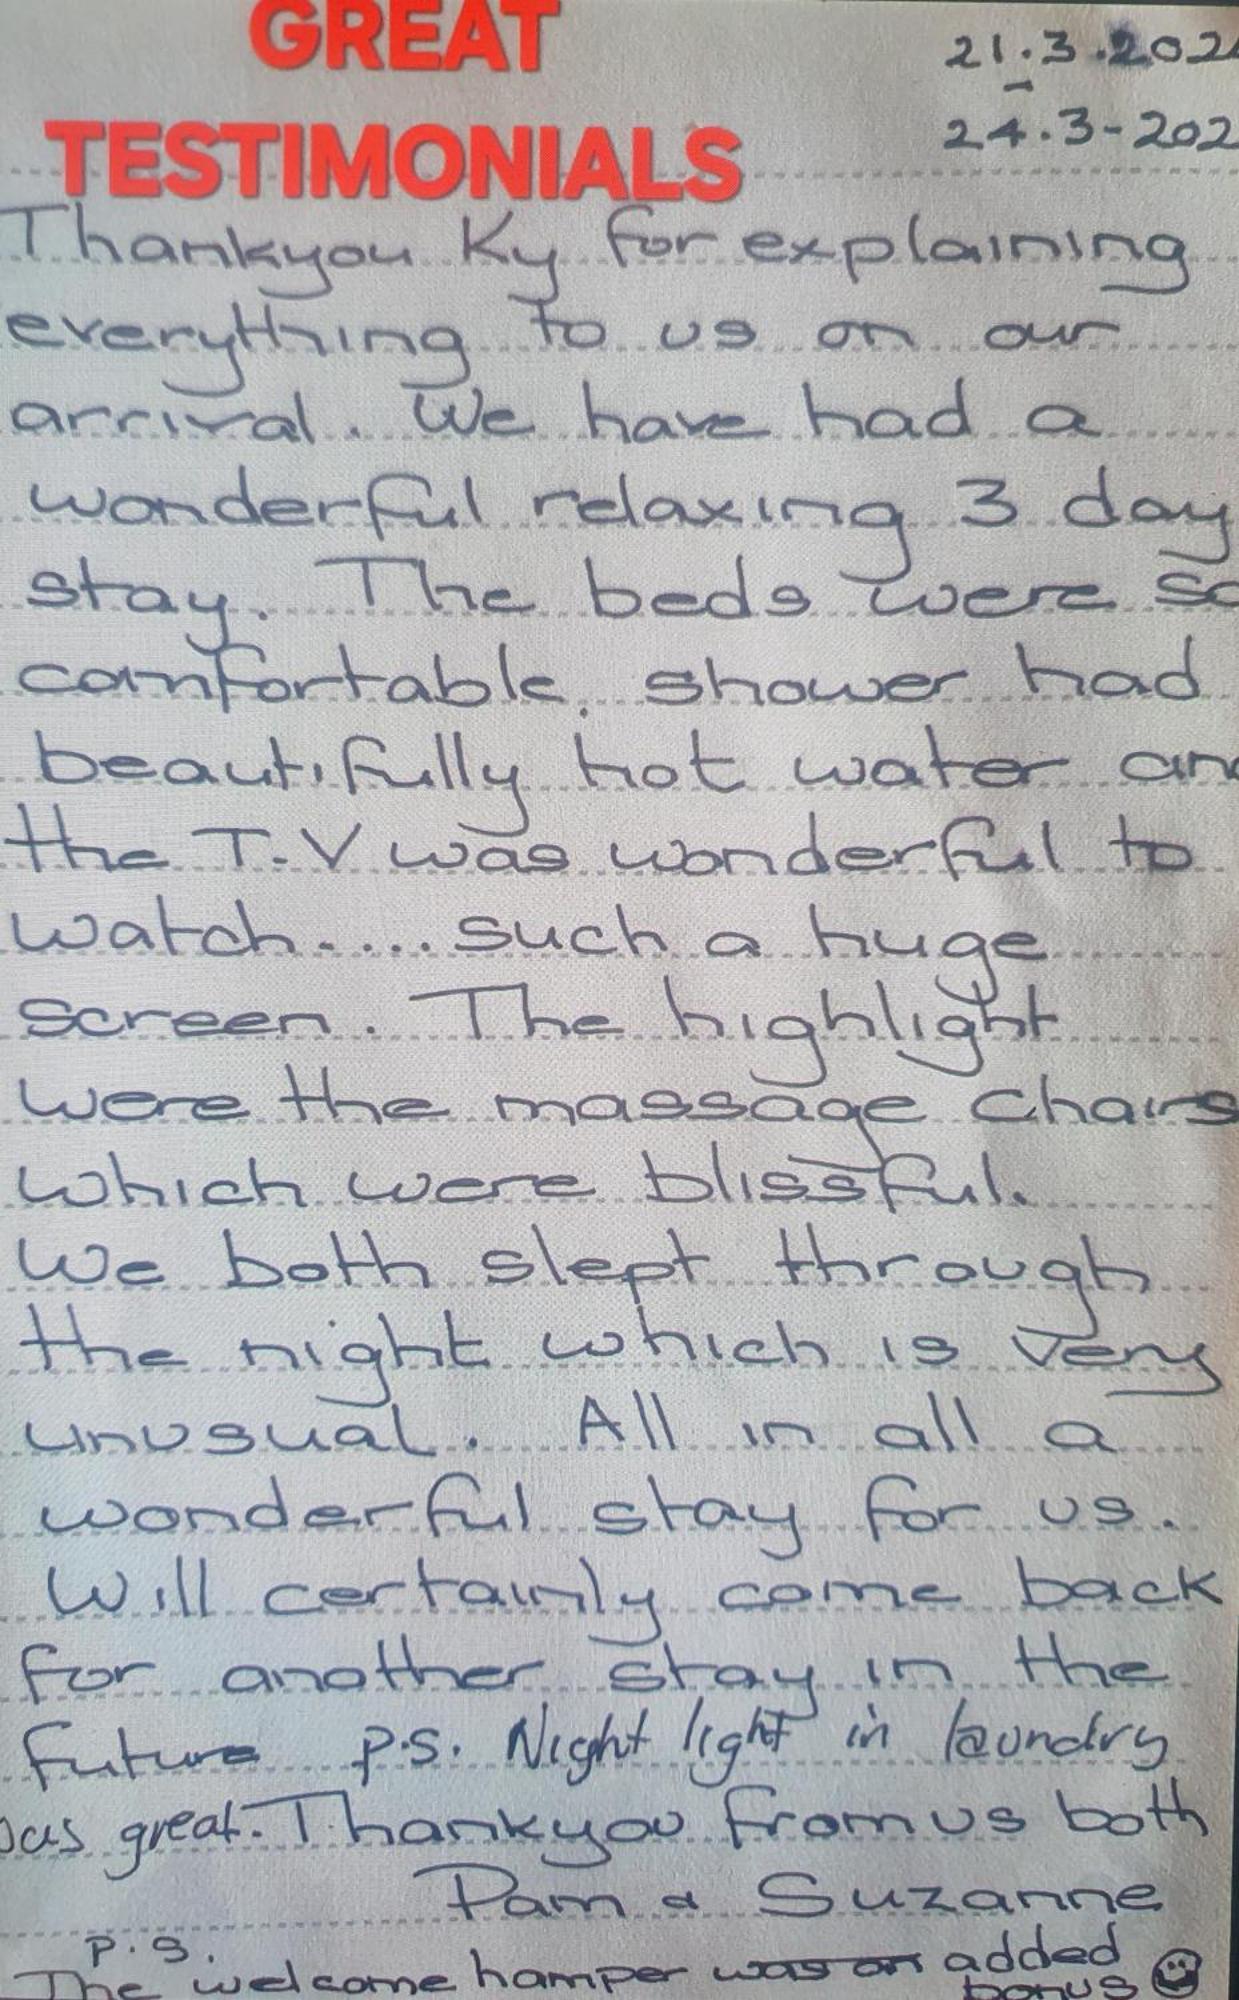 GREAT
TESTIMONIALS
21.3.202
-
24.3-202
Thankyou Ky for explaining
everything to us on our
arrival. We have had a
wonderful relaxing 3 day
stay. The beds were so
comfortable. shower had
beautifully hot water and
the T.V was wonderful to
watch..... such a huge
screen. The highlight
were the massage chairs
which were blissful.
We both slept through
the night which is very
unusual. All in all a
wonderful stay for us.
Will certainly come back
for another stay in the
future P.S. Night light in laundry
was great. Thankyou from us both
Pam & Suzanne
P.S.
The welcome hamper was an added
bonus